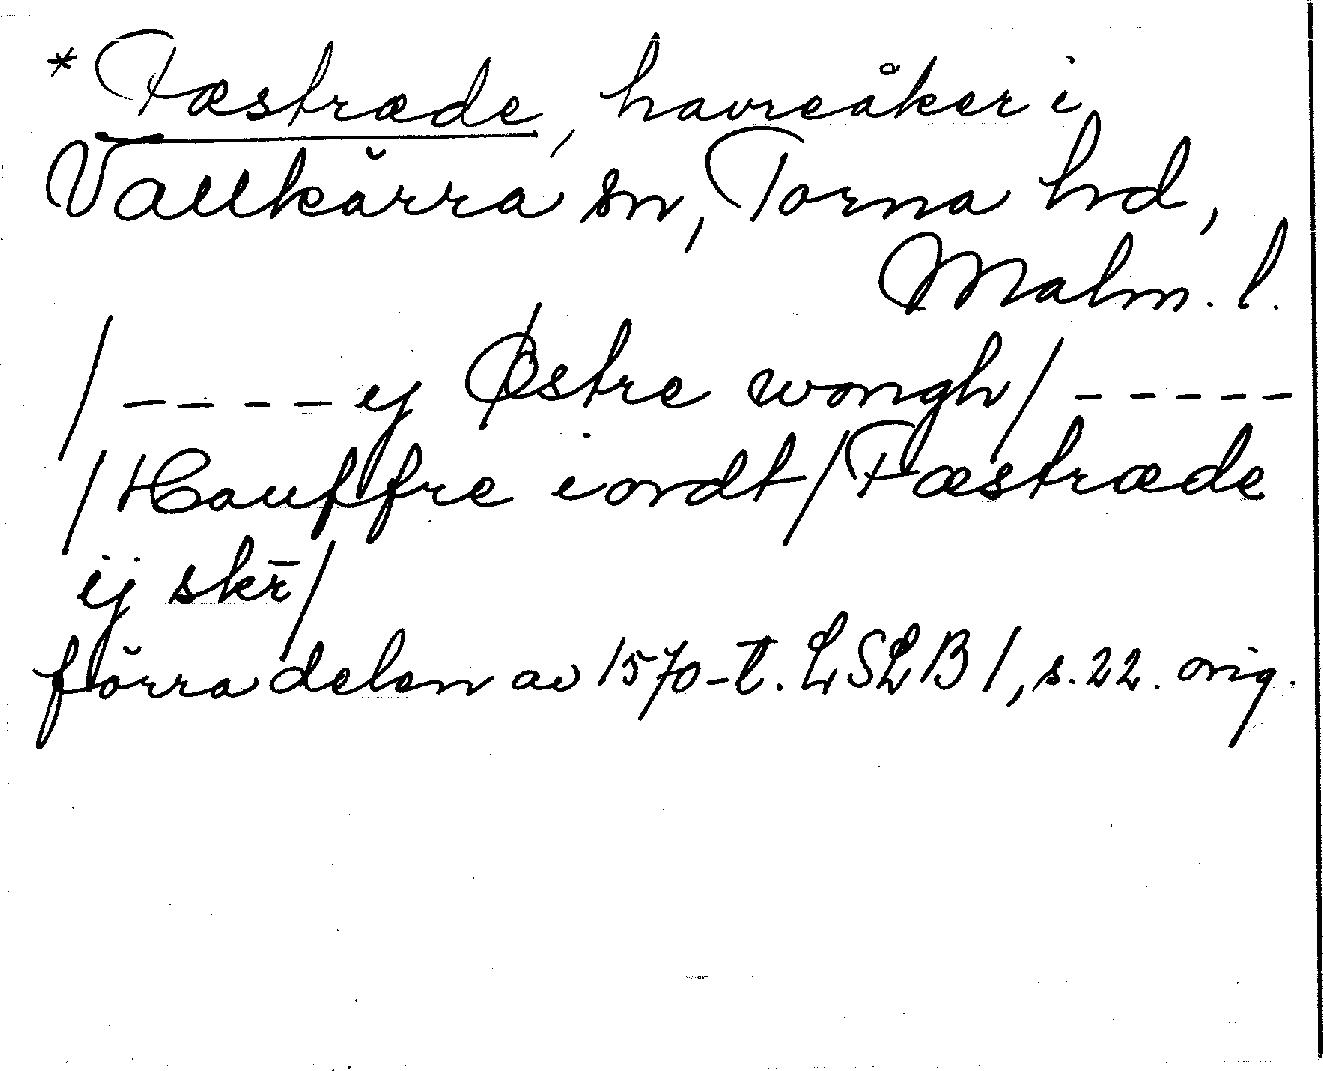 * Fæstræde, havreåker i
Vallkärra sn, Torna hd,
Malm. l.
/ - - - - ej Østre wongh / - - - - -
/ Hauffre iordt / Fæstræde
ij skr̄ /
förra delen av 1570-t. LSLB 1, s. 22. orig.